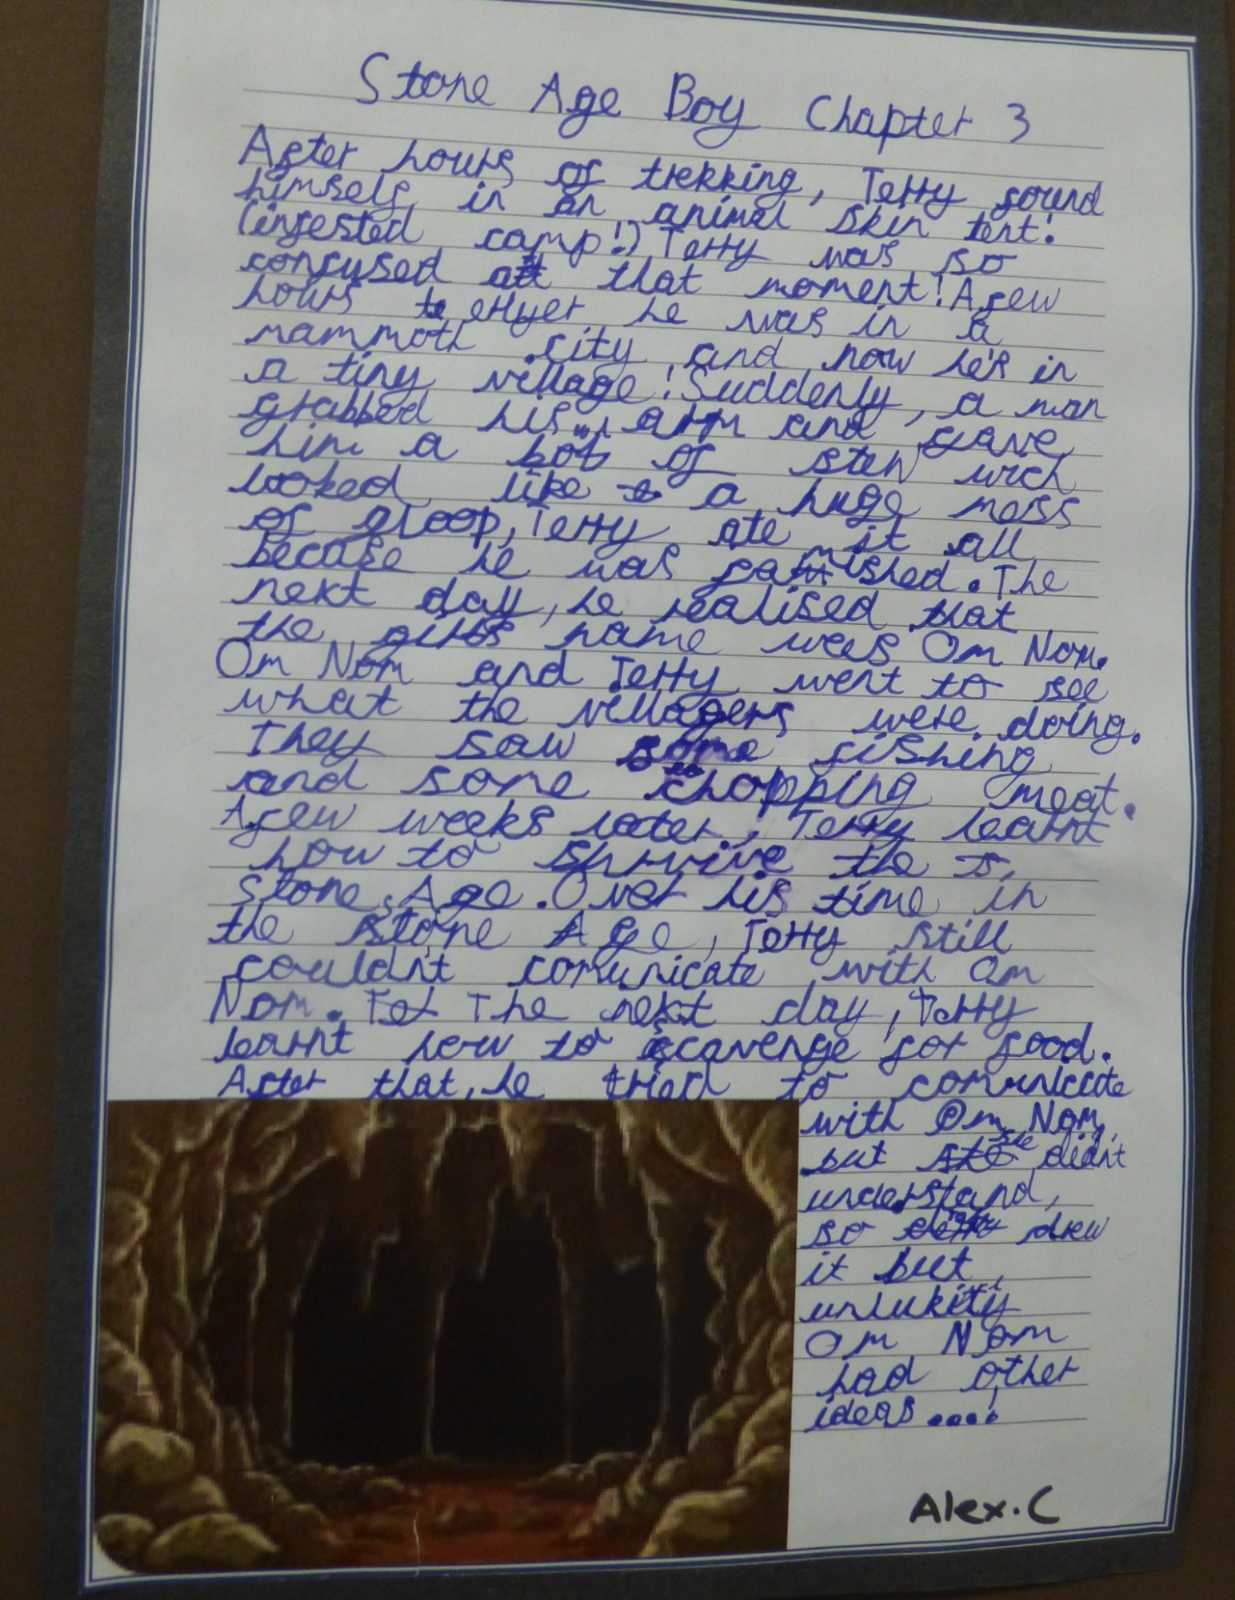 Stone Age Boy Chapter 3
After hours of trekking, Terry found
himself in an animal skin tent!
(infested camp!) Terry was so
confused at that moment! A few
hours erlyer he was in a
mammoth city and now he's in
a tiny village! Suddenly, a man
grabbed his arm and gave
him a bob of stew wich
looked like a huge mess
of gloop, Terry ate it all
becase he was famished. The
next day, he realised that
the girls name was Om Nom.
Om Nom and Terry went to see
what the villagers were doing.
They saw some fishing
and some chopping meat.
A few weeks later, Terry learnt
how to shrvive the
Stone Age. Over his time in
the stone Age, Terry still
couldn't comunicate with Om
Nom. The next day, Terry
learnt how to scavenge for food.
After that, he tried to comunicate
with Om Nom,
but she didn't
understand,
so drew
it but
unlukity
Om Nom
had other
ideas....
Alex.C